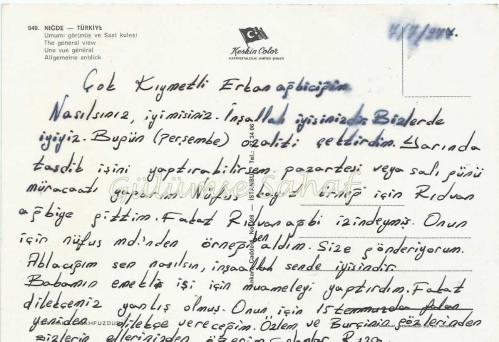 949. NİĞDE — TÜRKİYE
Umumi görünüş ve Saat kulesi
The general view
Une vue général
Allgemeine anblick
Keskin Color
Çok Kıymetli Erkan ağbiciğim
Nasılsınız, iyimisiniz. İnşallah iyisinizdir. Bizlerde
iyiyiz. Bugün (Perşembe) ozaliti çektirdim. Yarında
tasdik işini yaptırabilirsem pazartesi veya salı günü
müracaatı yaparım. Nüfus kayıt örneği için Rıdvan
ağbiye gittim. Fakat Rıdvan ağbi izindeymiş. Onun
için nüfus md.'nden örneği ben aldım. Size gönderiyorum.
Ablacığım sen nasılsın, inşaallah sende iyisindir.
Babamın emekli işi için muameleyi yaptırdım. Fakat
dilekçemiz yanlış olmuş. Onun için
yeniden dilekçe vereceğim. Özlem ve Burçinin gözlerinden
sizlerin ellerinizden